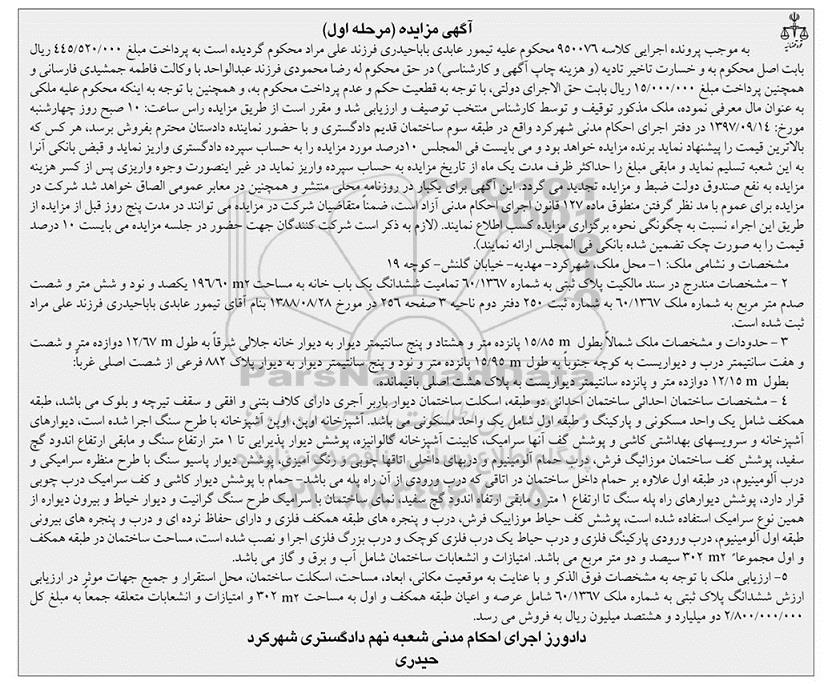 آگهی مزایده (مرحله اول)
به موجب پرونده اجرایی کلاسه ۹۵۰۰۷۶ محکوم علیه تیمور عابدی باباحیدری فرزند علی مراد محکوم گردیده است به پرداخت مبلغ ۴۴۵/۵۲۰/۰۰۰ ریال
بابت اصل محکوم به و خسارت تاخیر تادیه (و هزینه چاپ آگهی و کارشناسی) در حق محکوم له رضا محمودی فرزند عبدالواحد با وکالت فاطمه جمشیدی فارسانی و
همچنین پرداخت مبلغ ۱۵/۰۰۰/۰۰۰ ریال بابت حق الاجرای دولتی، با توجه به قطعیت حکم و عدم پرداخت محکوم به، و همچنین با توجه به اینکه محکوم علیه ملکی
به عنوان مال معرفی نموده، ملک مذکور توقیف و توسط کارشناس منتخب توصیف و ارزیابی شد و مقرر است از طریق مزایده راس ساعت: ۱۰ صبح روز چهارشنبه
مورخ: ۱۳۹۷/۰۹/۱۴ در دفتر اجرای احکام مدنی شهرکرد واقع در طبقه سوم ساختمان قدیم دادگستری و با حضور نماینده دادستان محترم بفروش برسد، هر کس که
بالاترین قیمت را پیشنهاد نماید برنده مزایده خواهد بود و می بایست فی المجلس ۱۰درصد مورد مزایده را به حساب سپرده دادگستری واریز نماید و قبض بانکی آنرا
به این شعبه تسلیم نماید و مابقی مبلغ را حداکثر ظرف مدت یک ماه از تاریخ مزایده به حساب سپرده واریز نماید در غیر اینصورت وجوه واریزی پس از کسر هزینه
مزایده به نفع صندوق دولت ضبط و مزایده تجدید می گردد. این آگهی برای یکبار در روزنامه محلی منتشر و همچنین در معابر عمومی الصاق خواهد شد شرکت در
مزایده برای عموم با مد نظر گرفتن منطوق ماده ۱۲۷ قانون اجرای احکام مدنی آزاد است، ضمناً متقاضیان شرکت در مزایده می توانند در مدت پنج روز قبل از مزایده از
طریق این اجراء نسبت به چگونگی نحوه برگزاری مزایده کسب اطلاع نمایند. (لازم به ذکر است شرکت کنندگان جهت حضور در جلسه مزایده می بایست ۱۰ درصد
قیمت را به صورت چک تضمین شده بانکی فی المجلس ارائه نمایند).
مشخصات و نشانی ملک: ۱- محل ملک: شهرکرد- مهدیه- خیابان گلنش- کوچه ۱۹
۲ - مشخصات مندرج در سند مالکیت پلاک ثبتی به شماره ۶۰/۱۳۶۷ تمامیت ششدانگ یک باب خانه به مساحت ۱۹۶/۶۰ m۲ یکصد و نود و شش متر و شصت
صدم متر مربع به شماره ملک ۶۰/۱۳۶۷ به شماره ثبت ۲۵۰ دفتر دوم ناحیه ۳ صفحه ۲۵۶ در مورخ ۱۳۸۸/۰۸/۲۸ بنام آقای تیمور عابدی باباحیدری فرزند علی مراد
ثبت شده است.
۳ - حدودات و مشخصات ملک شمالاً بطول ۱۵/۸۵ m پانزده متر و هشتاد و پنج سانتیمتر دیوار به دیوار خانه جلالی شرقاً به طول ۱۲/۶۷ m دوازده متر و شصت
و هفت سانتیمتر درب و دیواریست به کوچه جنوباً به طول ۱۵/۹۵ m پانزده متر و نود و پنج سانتیمتر دیوار به دیوار پلاک ۸۸۲ فرعی از شصت اصلی غرباً:
بطول ۱۲/۱۵ m دوازده متر و پانزده سانتیمتر دیواریست به پلاک هشت اصلی باقیمانده.
۴ - مشخصات ساختمان احداثی ساختمان احداثی دو طبقه، اسکلت ساختمان دیوار باربر آجری دارای کلاف بتنی و افقی و سقف تیرچه و بلوک می باشد، طبقه
همکف شامل یک واحد مسکونی و پارکینگ و طبقه اول شامل یک واحد مسکونی می باشد. آشپزخانه اوپن، اوپن آشپزخانه با طرح سنگ اجرا شده است، دیوارهای
آشپزخانه و سرویسهای بهداشتی کاشی و پوشش کف آنها سرامیک، کابینت آشپزخانه گالوانیزه، پوشش دیوار پذیرایی تا ۱ متر ارتفاع سنگ و مابقی ارتفاع اندود گچ
سفید، پوشش کف ساختمان موزائیگ فرش، درب حمام آلومینیوم و دربهای داخلی اتاقها چوبی و رنگ آمیزی، پوشش دیوار پاسیو سنگ با طرح منظره سرامیکی و
درب آلومینیوم، در طبقه اول علاوه بر حمام داخل ساختمان در اتاقی که درب ورودی از آن راه پله می باشد- حمام با پوشش دیوار کاشی و کف سرامیک درب چوبی
قرار دارد، پوشش دیوارهای راه پله سنگ تا ارتفاع ۱ متر و مابقی ارتفاع اندود گچ سفید، نمای ساختمان با سرامیک طرح سنگ گرانیت و دیوار حیاط و بیرون دیواره از
همین نوع سرامیک استفاده شده است، پوشش کف حیاط موزاییک فرش، درب و پنجره های طبقه همکف فلزی و دارای حفاظ نرده ای و درب و پنجره های بیرونی
طبقه اول آلومینیوم، درب ورودی پارکینگ فلزی و درب حیاط یک درب فلزی کوچک و درب بزرگ فلزی اجرا و نصب شده است، مساحت ساختمان در طبقه همکف
و اول مجموعا ً ۳۰۲ m۲ سیصد و دو متر مربع می باشد. امتیازات و انشعابات ساختمان شامل آب و برق و گاز می باشد.
۵- ارزیابی ملک با توجه به مشخصات فوق الذکر و با عنایت به موقعیت مکانی، ابعاد، مساحت، اسکلت ساختمان، محل استقرار و جمیع جهات موثر در ارزیابی
ارزش ششدانگ پلاک ثبتی به شماره ملک ۶۰/۱۳۶۷ شامل عرصه و اعیان طبقه همکف و اول به مساحت ۳۰۲ m۲ و امتیازات و انشعابات متعلقه جمعاً به مبلغ کل
۲/۸۰۰/۰۰۰/۰۰۰ دو میلیارد و هشتصد میلیون ریال به فروش می رسد.
دادورز اجرای احکام مدنی شعبه نهم دادگستری شهرکرد
حیدری
ParsNamadData